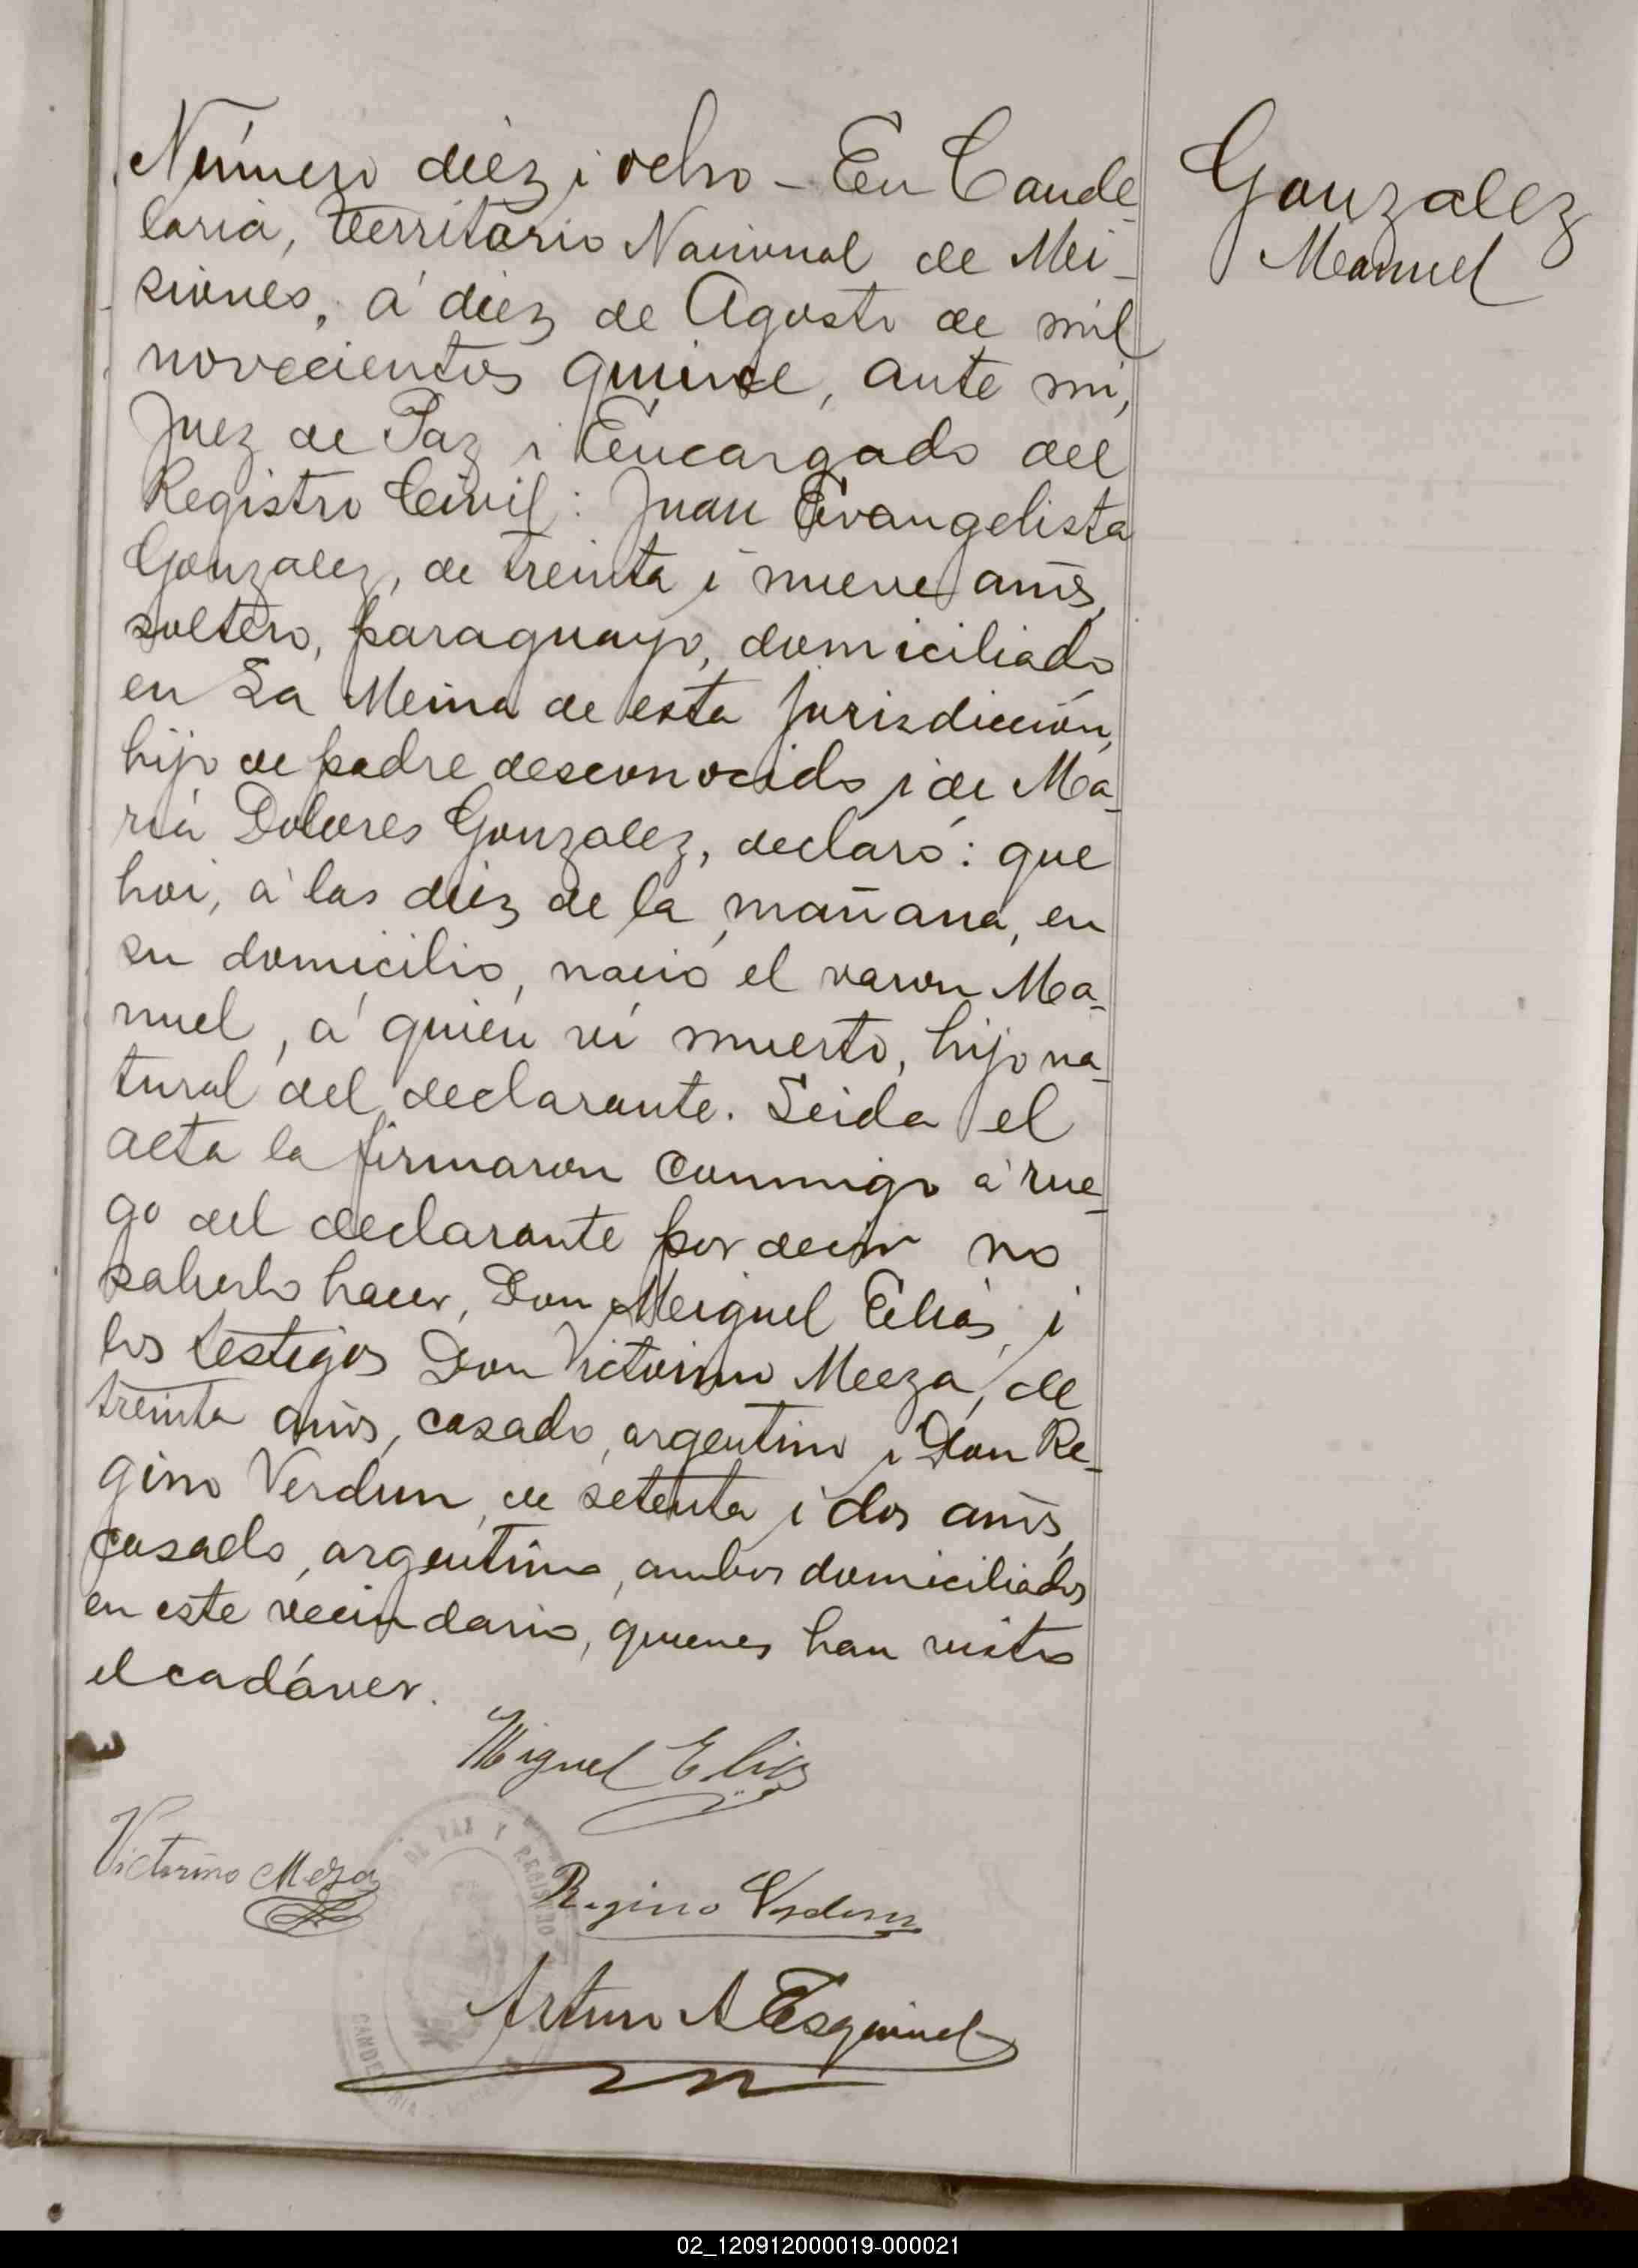 Número diez i ocho - En Cande-
laria, Territorio Nacional de Mi-
siones, á diez de Agosto de mil
novecientos quince, ante mi,
Juez de Paz i Encargado del
Registro Civil: Juan Evangelista
Gonzalez, de treinta i nueve años,
soltero, paraguayo, domiciliado
en La Mina de esta jurisdicción,
hijo de padre desconocido i de Ma-
ría Dolores Gonzalez, declaró: que
hoi, á las diez de la mañana, en
su domicilio, nació el varon Ma-
nuel, á quién ví muerto, hijo na-
tural del declarante. Leida el
acta la firmaron conmigo á rue-
go del declarante por decir no
saberlo hacer, Don Miguel Elías, i
los testigos Don Victorino Meza, de
treinta años, casado, argentino i Don Re-
gino Verdun, de setenta i dos años,
casado, argentino, ambos domiciliados
en este vecindario, quienes han visto
el cadáver.
Gonzalez
Manuel
Miguel Elias
Victorino Meza
Regino Verdun
Arturo A Esquivel
DE PAZ Y REGISTRO
CANDELARIA
02_120912000019-000021